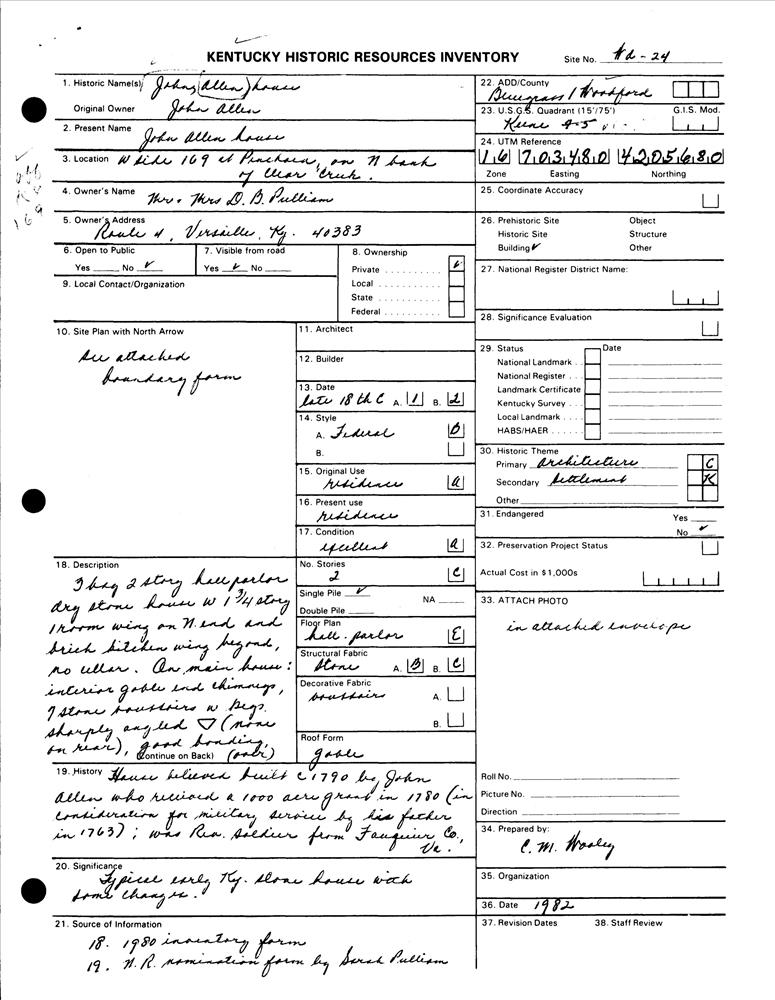 KENTUCKY HISTORIC RESOURCES INVENTORY
Site No. Wd-24
1. Historic Name(s) John (Allen) house
Original Owner John Allen
2. Present Name
John Allen house
3. Location W side 169 at Pinckard, on N bank
of Clear Creek.
4. Owner's Name
Mr. & Mrs D. B. Pulliam
5. Owner's Address
Route 4, Versailles, Ky. 40383
6. Open to Public
Yes No ✓
7. Visible from road
Yes ✓ No
8. Ownership
Private ✓
Local
State
Federal
9. Local Contact/Organization
10. Site Plan with North Arrow
See attached
boundary form
11. Architect
12. Builder
13. Date
late 18th C A. 1 B. 2
14. Style
A. Federal B
B.
15. Original Use
residence a
16. Present use
residence
17. Condition
excellent a
18. Description
3 bay 2 story hall parlor
dry stone house w 1 3/4 story
1 room wing on N. end and
brick kitchen wing beyond,
no cellar. On main house:
interior gable end chimneys,
7 stone voussoirs w
sharply angled ▽ (none
on rear), good bonding,
(Continue on Back) (over)
No. Stories
2 C
Single Pile ✓
NA
Double Pile
Floor Plan
hall-parlor E
Structural Fabric
stone A. B B. C
Decorative Fabric
voussoirs A.
B.
Roof Form
gable
19. History House believed built c 1790 by John
Allen who received a 1000 acre grant in 1780 (in
consideration for military service by his father
in 1763); was Rev. soldier from Fauquier Co.,
Va.
20. Significance
Typical early Ky. stone house with
some changes.
21. Source of Information
18. 1980 inventory form
19. N.R. nomination form by Sarah Pulliam
22. ADD/County
Bluegrass / Woodford
23. U.S.G.S. Quadrant (15'/75') G.I.S. Mod.
Keene
24. UTM Reference
16 703480 4205680
Zone Easting Northing
25. Coordinate Accuracy
26. Prehistoric Site Object
Historic Site Structure
Building ✓ Other
27. National Register District Name:
28. Significance Evaluation
29. Status Date
National Landmark
National Register
Landmark Certificate
Kentucky Survey
Local Landmark
HABS/HAER
30. Historic Theme
Primary architecture C
Secondary settlement K
Other
31. Endangered Yes
No ✓
32. Preservation Project Status
Actual Cost in $1,000s
33. ATTACH PHOTO
in attached envelope
Roll No.
Picture No.
Direction
34. Prepared by:
C. M. Wooley
35. Organization
36. Date 1982
37. Revision Dates 38. Staff Review